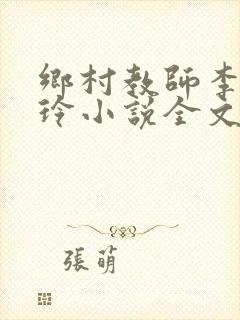 鄉村教師李
玲小說全文
張萌